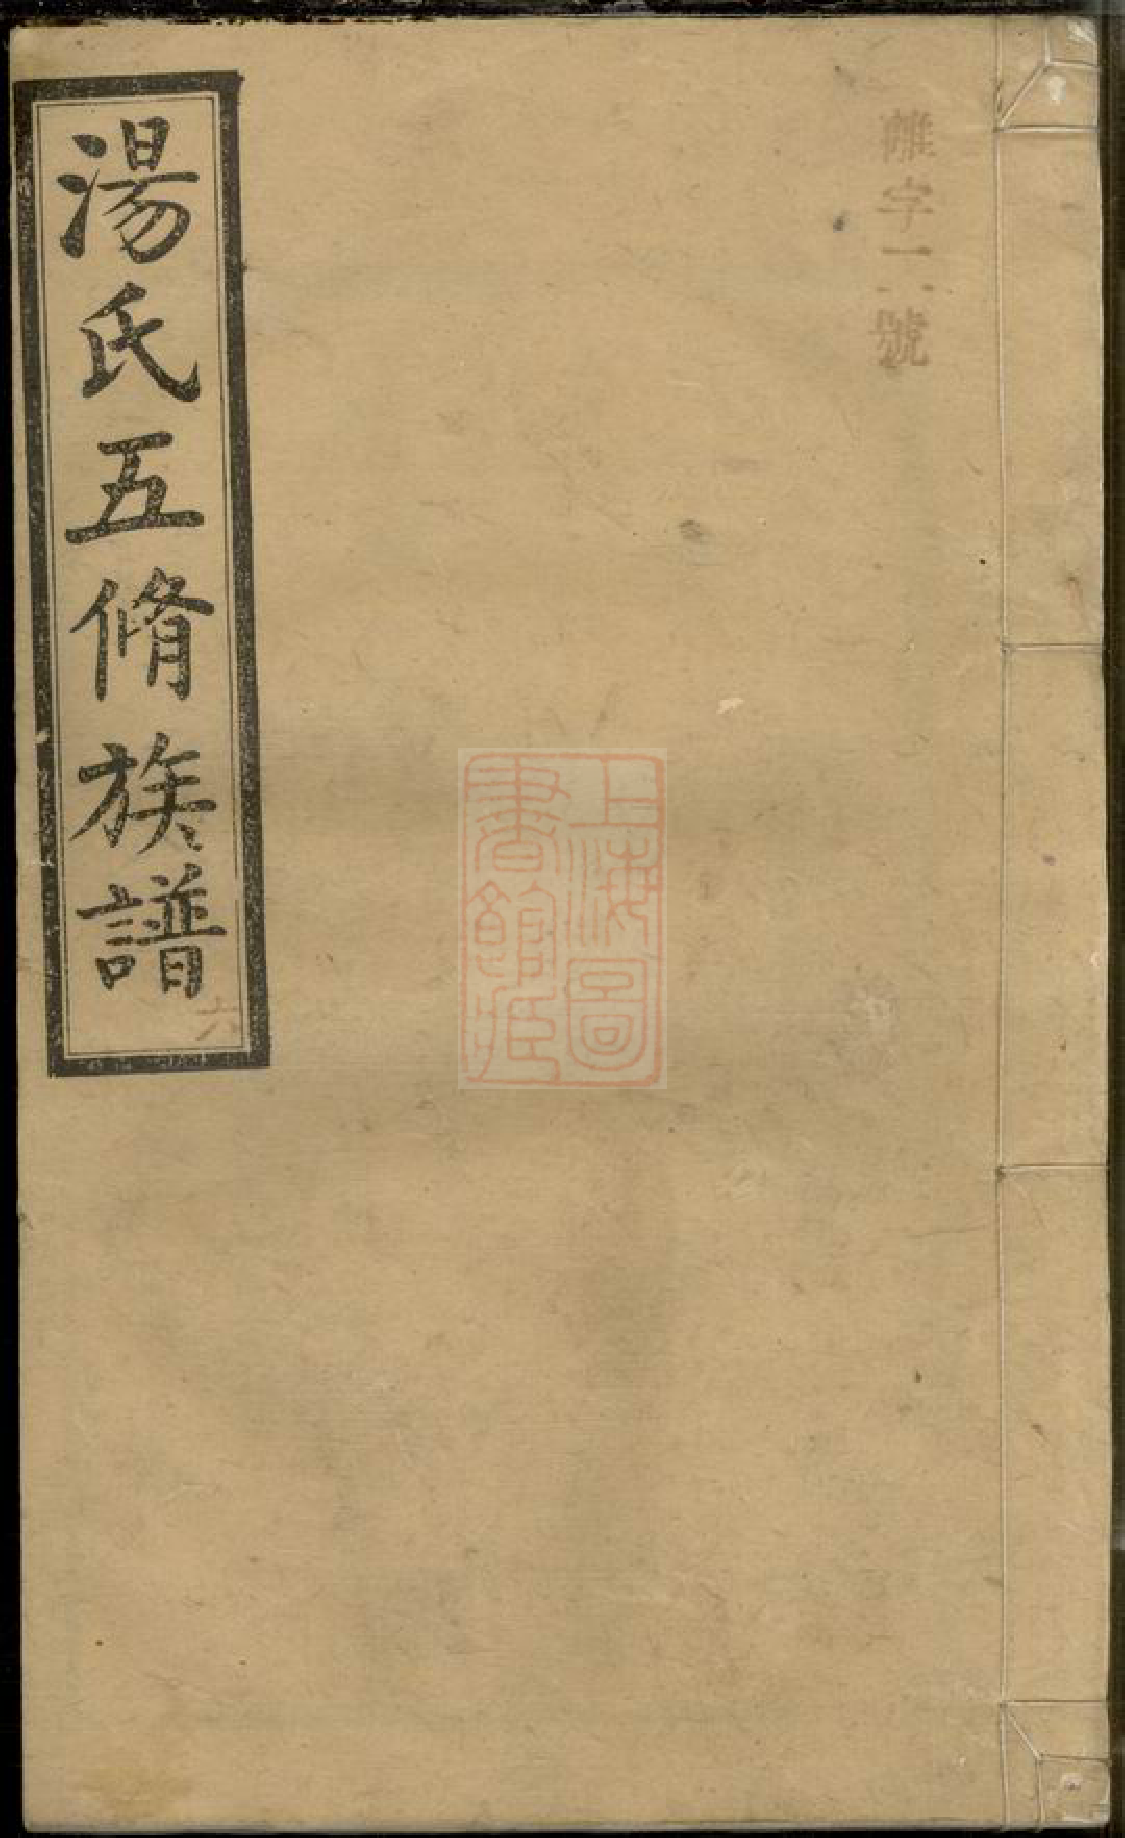 字一六號
湯氏五脩族譜
六
上海圖
書館藏